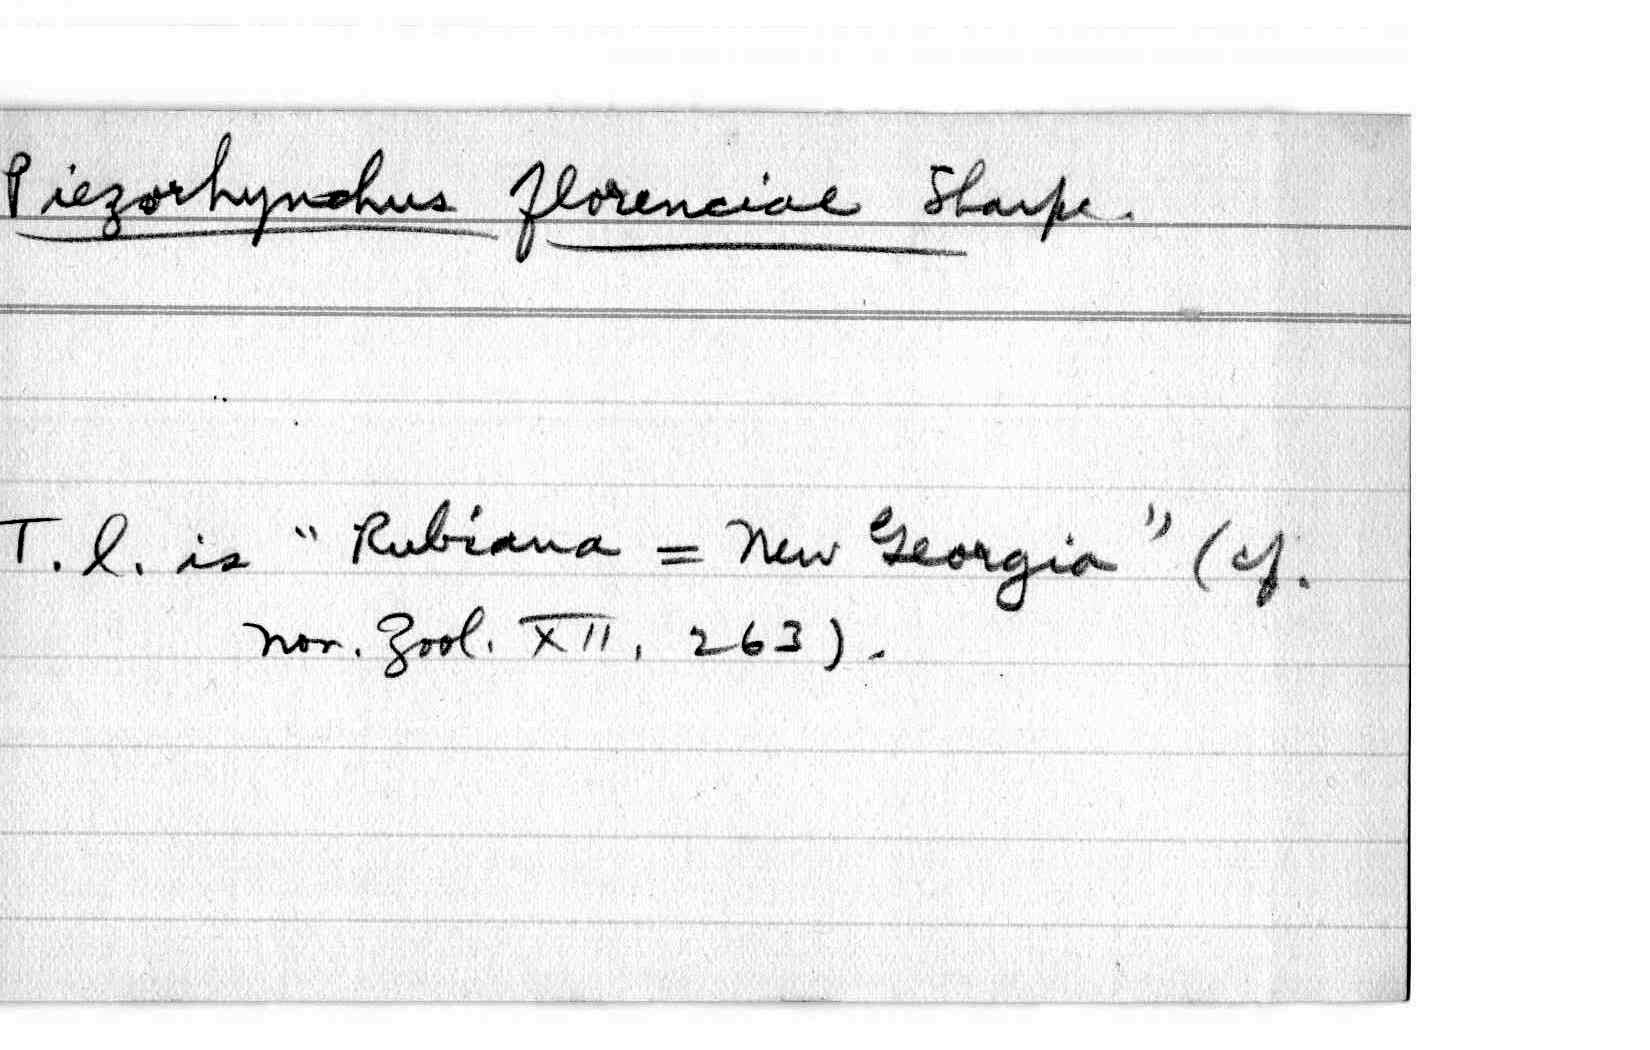 Piezorhynchus florenciae Sharpe.
T.l. is "Rubiana = New Georgia" (cf.
Nov. Zool. XII, 263).